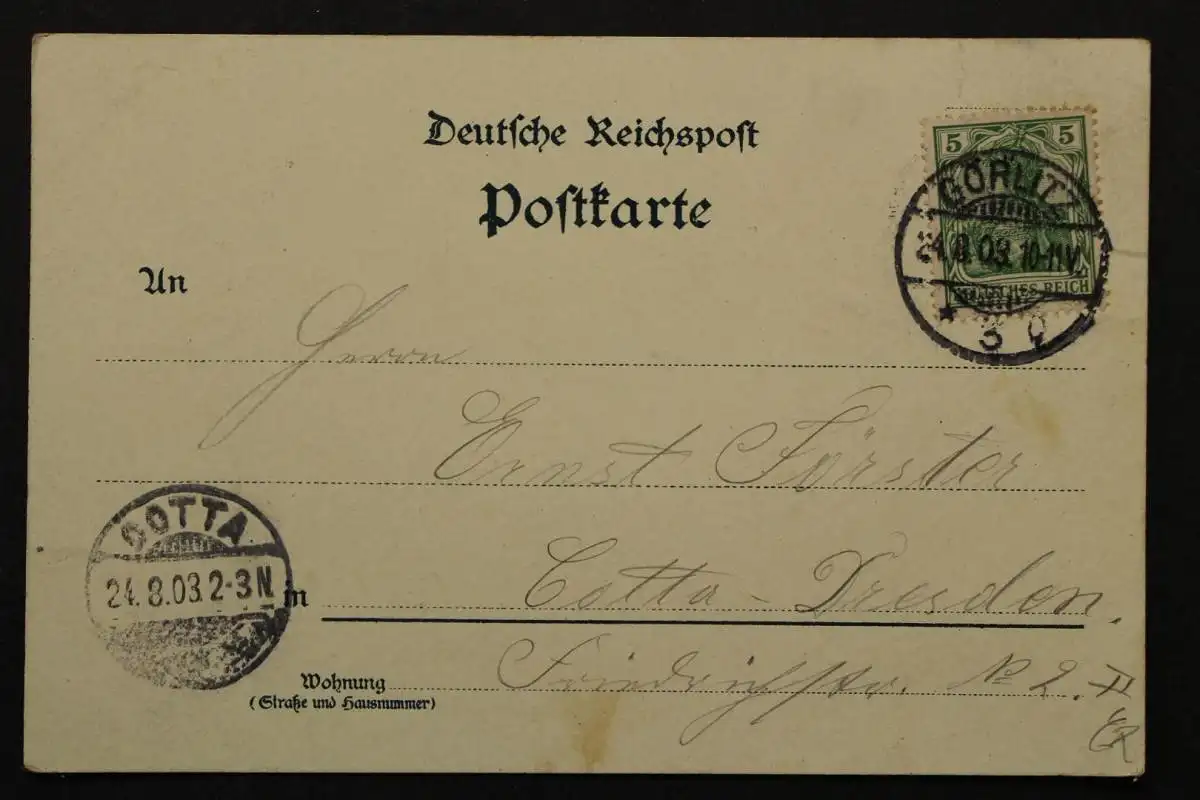 Deutsche Reichspost
Postkarte
5 5
GÖRLITZ
24.8.03. 10-11V.
DEUTSCHES REICH
* 3
An
Herrn
Ernst Förster
COTTA
24.8.03 2-3N.
in
Cotta - Dresden.
Wohnung
(Straße und Hausnummer)
Friedrichstr. No 2. II